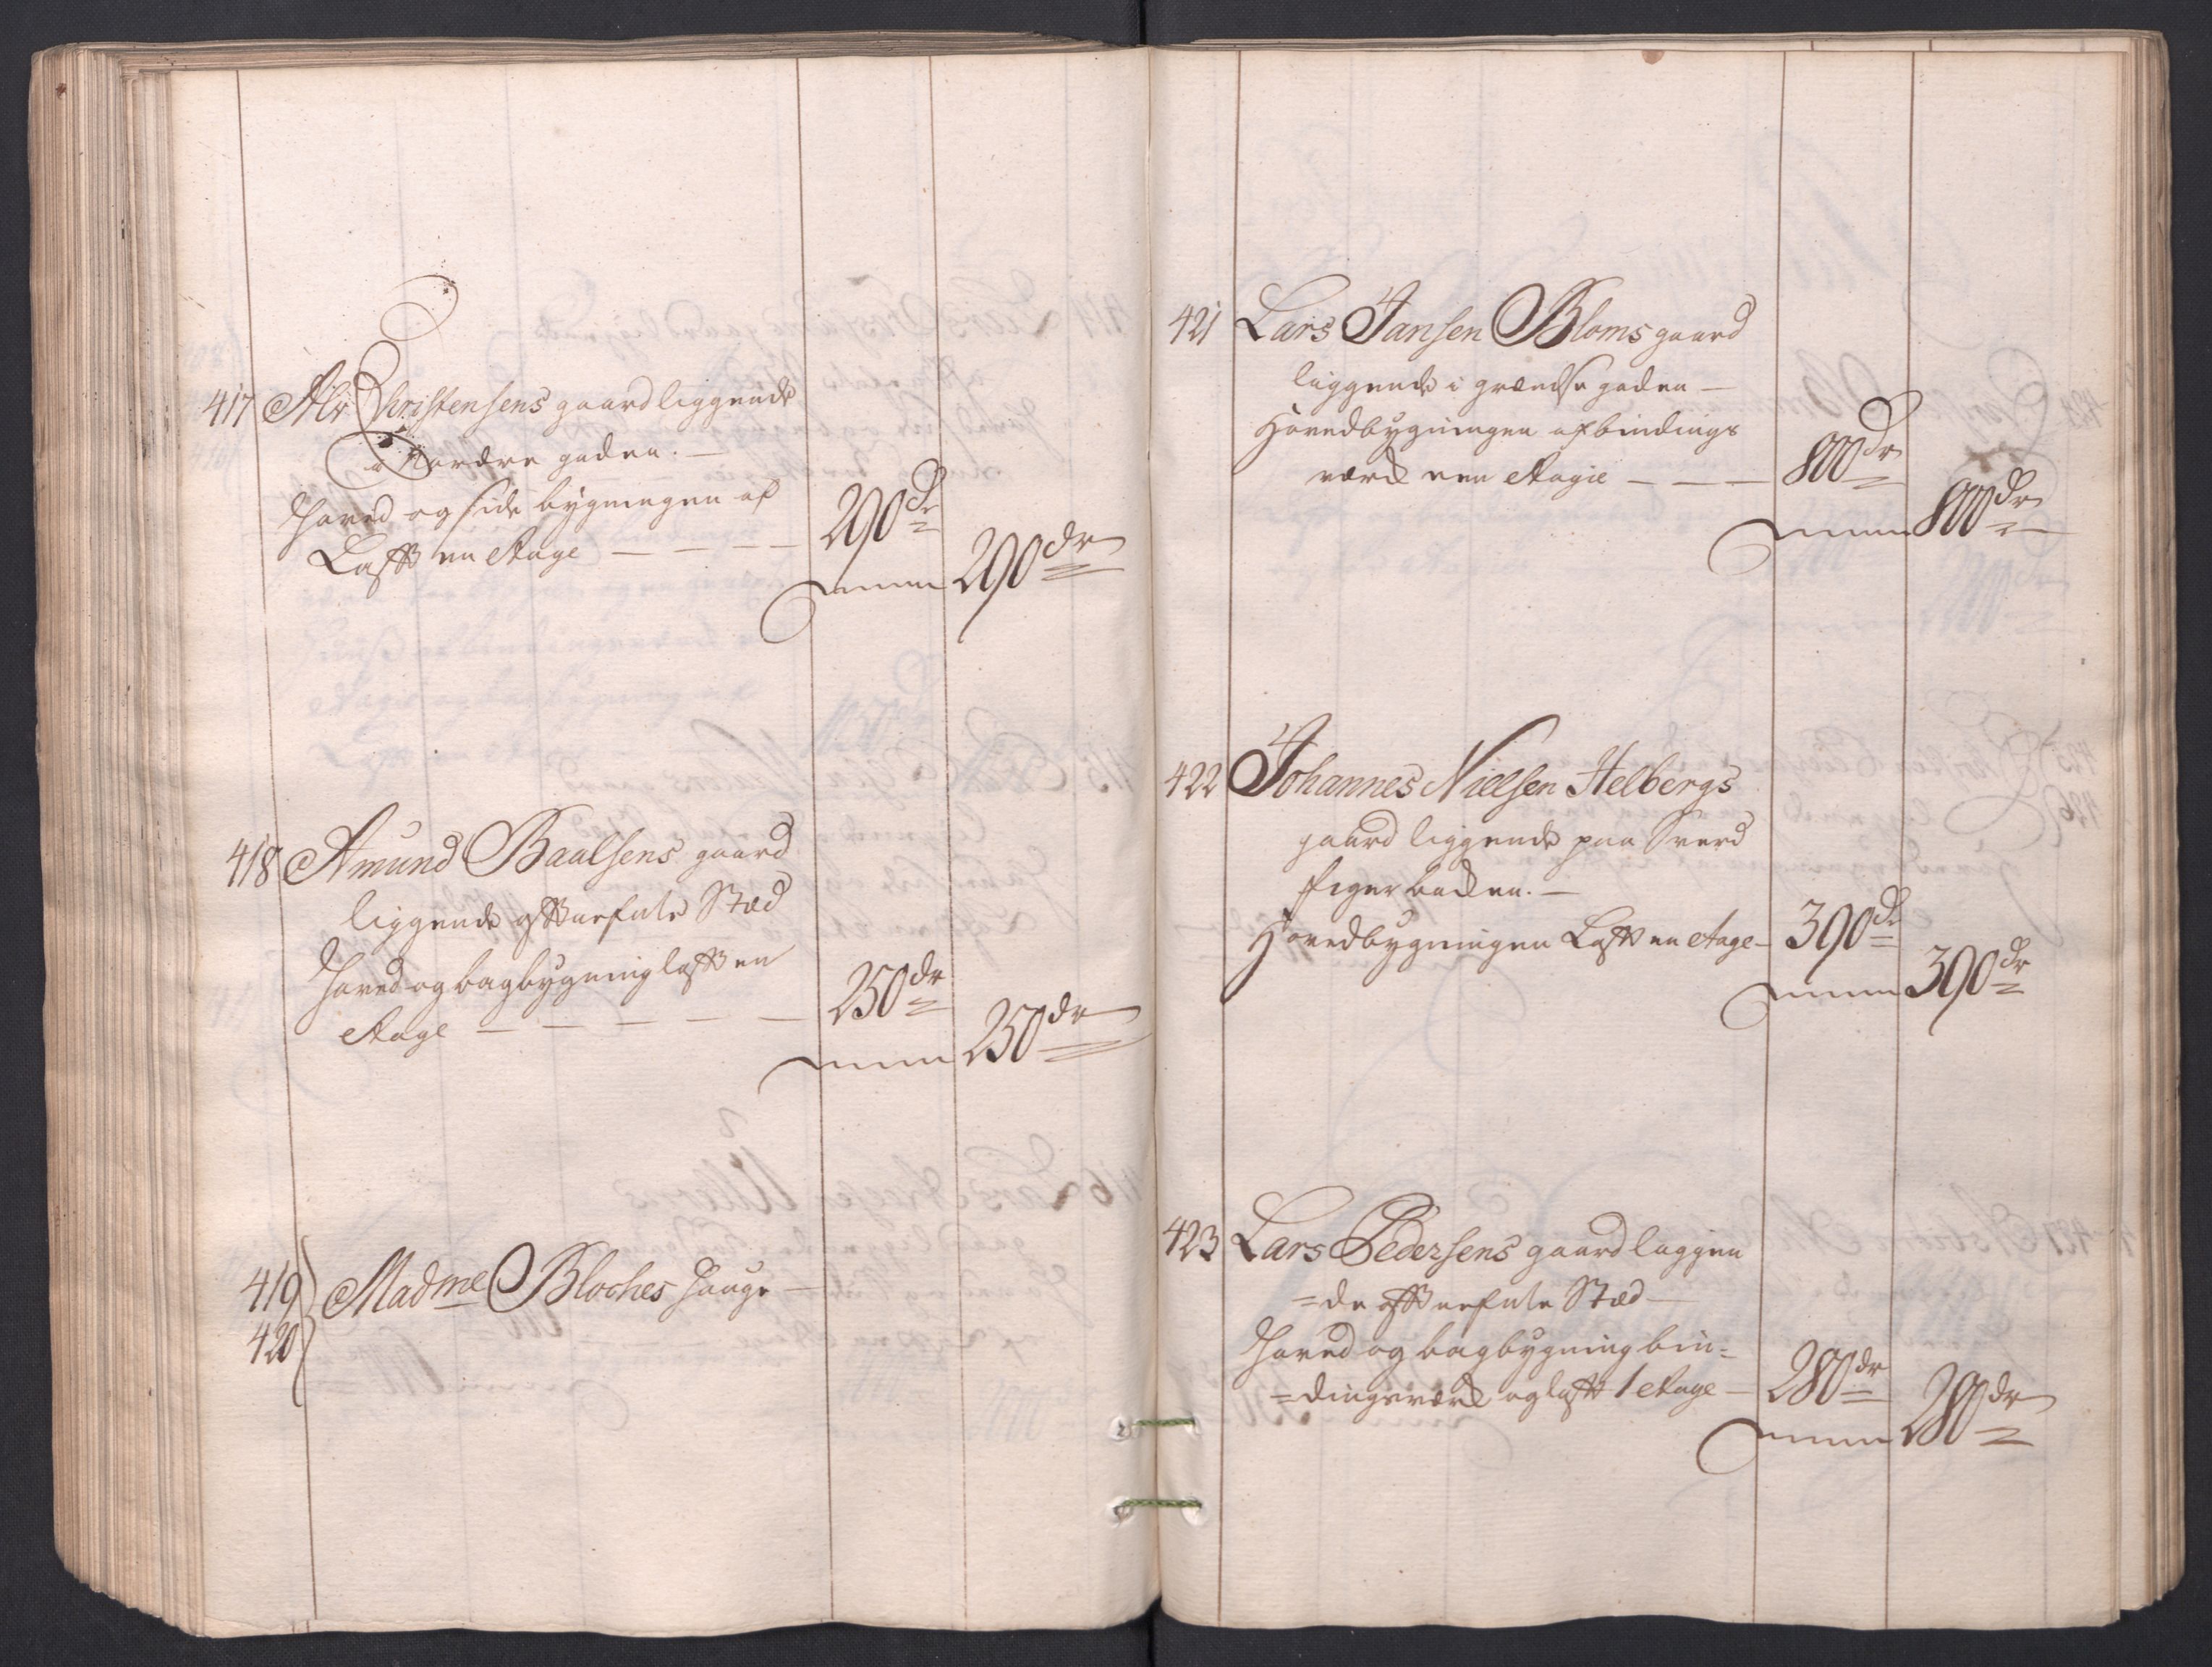 417 Mr Christensens gaard liggende
i Nordre gaden. —
Hoved og side bygningen af
Laft en Etage — — — — 290 dr
290 dr
418 Amund Baalsens gaard
liggende
Hoved og bagbygning laft en
Etage — — — — — 250 dr
250 dr
419 Madme Bloches Hauge —
420
421 Lars Jansen Bloms gaard
liggende i grændse gaden —
Hovedbygningen af bindings
værck een Etagie — — — 800 dr
800 dr
422 Johannes Nielsen Helbergs
gaard liggende paa Sverd
figer backen. —
Hovedbygningen Laft en Etage — 390 dr
390 dr
423 Lars Pedersens gaard liggen
=de
Hoved og bagbygning bin=
=dingsværck og laft 1 Etage — 280 dr
280 dr